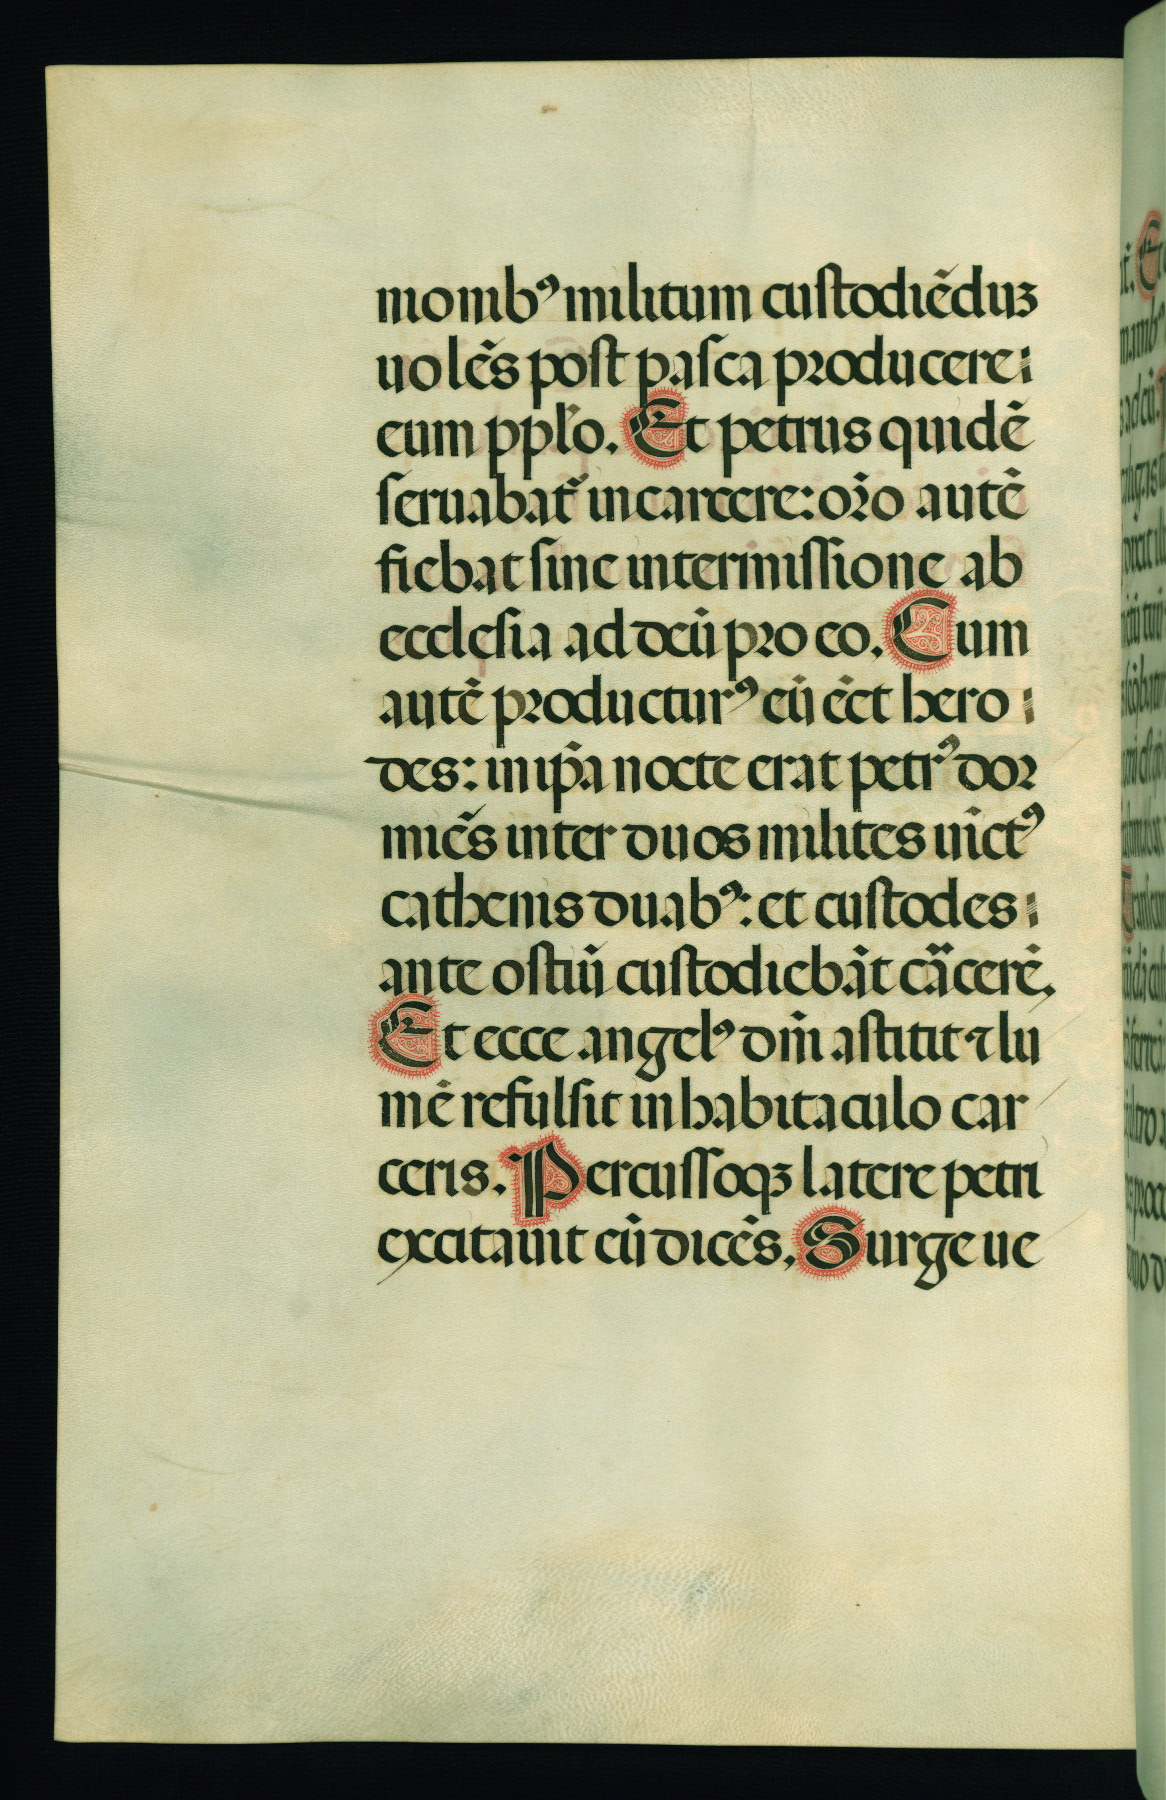 nionibꝰ militum custodiẽduʒ
uolẽs post pasca producere
eum pplo. Et petrus quidẽ
seruabat᷑ in carcere: oro autẽ
fiebat sine intermissione ab
ecclesia ad deũ pro eo. Cum
autẽ producturꝰ eũ eẽt hero
des: in ip̃a nocte erat petrꝰ dor
miẽs inter duos milites uĩctꝰ
cathenis duabꝰ: et custodes
ante ostiũ custodiebãt cãcerẽ.
Et ecce angelꝰ dñi astitit ⁊ lu
mẽ refulsit in habitaculo car
ceris. Percussoqʒ latere petri
excitauit eũ dicẽs. Surge ue